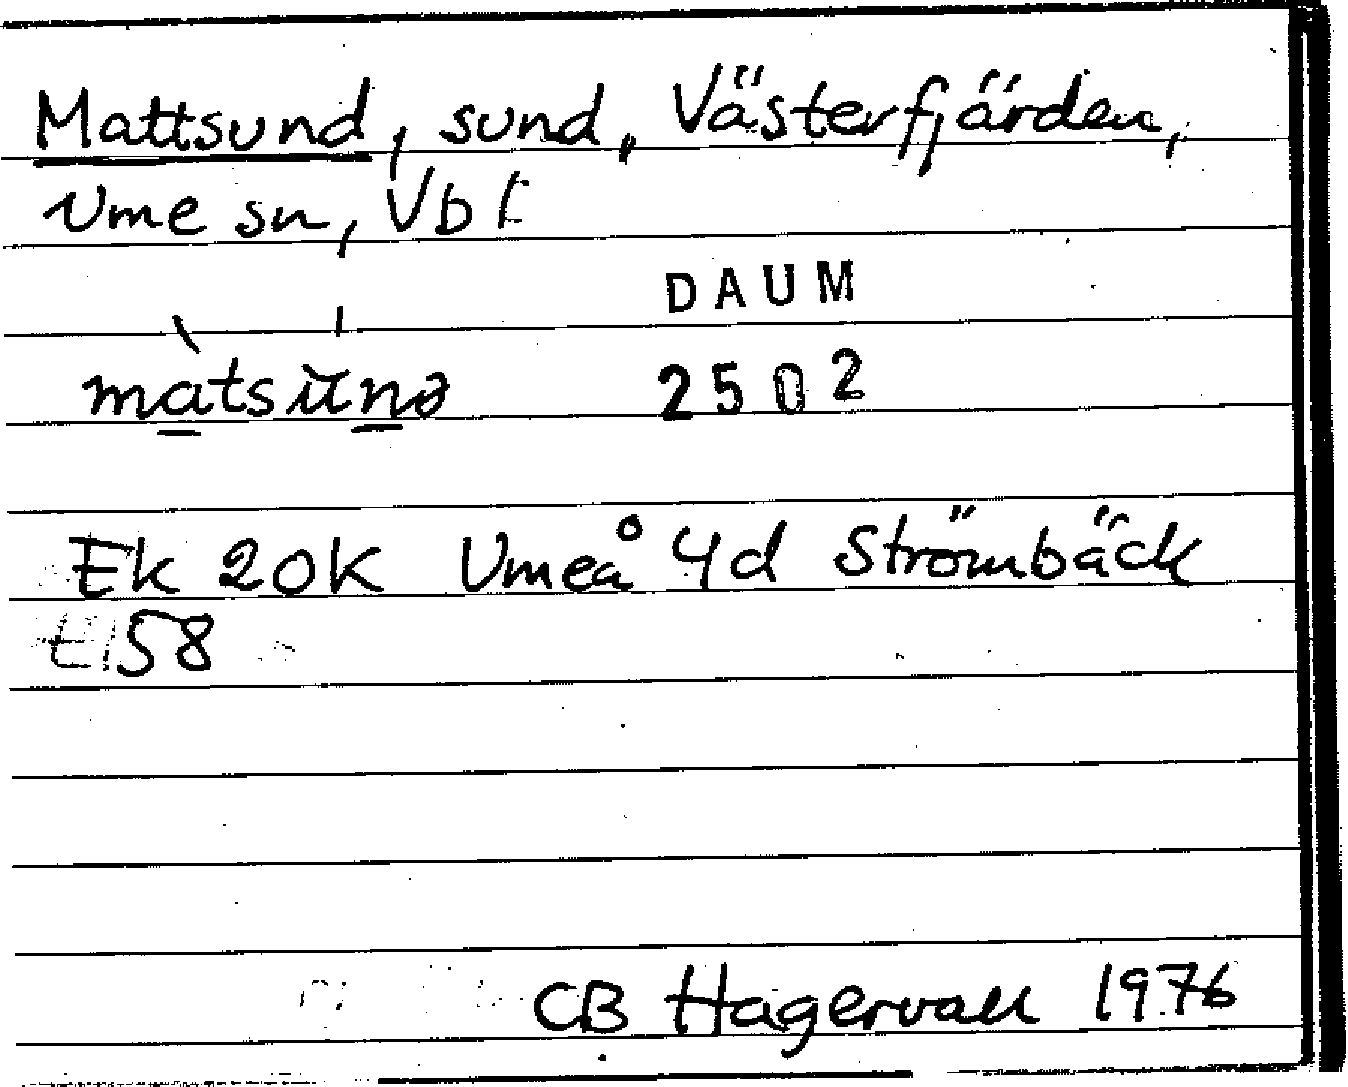 Mattsund, sund, Västerfjärden,
Ume sn, Vb l
DAUM
màtsŭnə 2502
Ek 20K Umeå 4d Strömbäck
t 158
CB Hagervall 1976